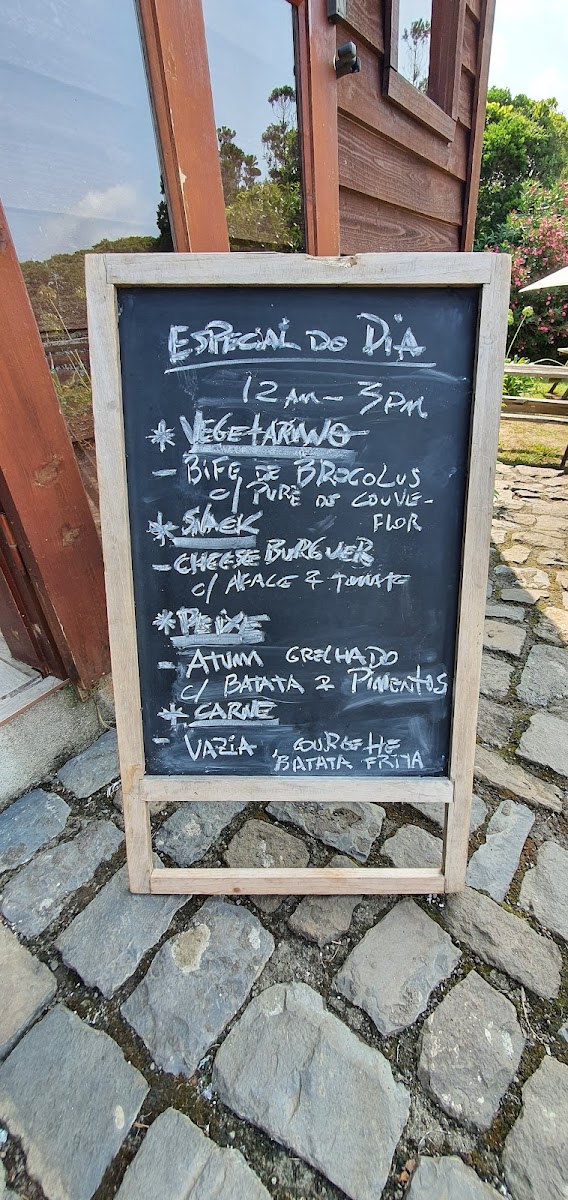 ESPECIAL DO DIA
12 AM - 3 PM
* VEGETARIANO
- BIFE DE BROCOLUS
c/ PURÉ DE COUVE-
FLOR
* SNACK
- CHEESE BURGUER
c/ ALFACE & TOMATE
* PEIXE
- ATUM GRELHADO
c/ BATATA & PIMENTOS
* CARNE
- VAZIA, COURGETTE
BATATA FRITA